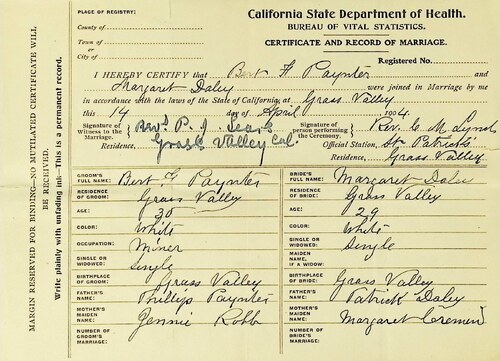 California State Department of Health.
PLACE OF REGISTRY:
BUREAU OF VITAL STATISTICS.
County of
CERTIFICATE AND RECORD OF MARRIAGE.
Town of
or
City of
Registered No.
I HEREBY CERTIFY that Bert F Paynter and
Margaret Daley were joined in Marriage by me
in accordance with the laws of the State of California, at Grass Valley
this 14 day of April 1904.
Signature of Witness to the Marriage, Rev. P. J.
Residence, Grass Valley Cal.
Signature of person performing the Ceremony Rev. C M Lynch
Official Station, St Patricks
Residence, Grass Valley
GROOM'S FULL NAME: Bert F Paynter
RESIDENCE OF GROOM: Grass Valley
AGE: 30
COLOR: White
OCCUPATION: Miner
SINGLE OR WIDOWED: Single
BIRTHPLACE OF GROOM: Grass Valley
FATHER'S NAME: Phillips Paynter
MOTHER'S MAIDEN NAME: Jennie Robb
NUMBER OF GROOM'S MARRIAGE:
BRIDE'S FULL NAME: Margaret Daley
RESIDENCE OF BRIDE: Grass Valley
AGE: 29
COLOR: White
SINGLE OR WIDOWED: Single
MAIDEN NAME, IF A WIDOW:
BIRTHPLACE OF BRIDE: Grass Valley
FATHER'S NAME: Patrick Daley
MOTHER'S MAIDEN NAME: Margaret
NUMBER OF BRIDE'S MARRIAGE:
MARGIN RESERVED FOR BINDING—NO MUTILATED CERTIFICATE WILL
BE RECEIVED.
Write plainly with unfading ink—This is a permanent record.